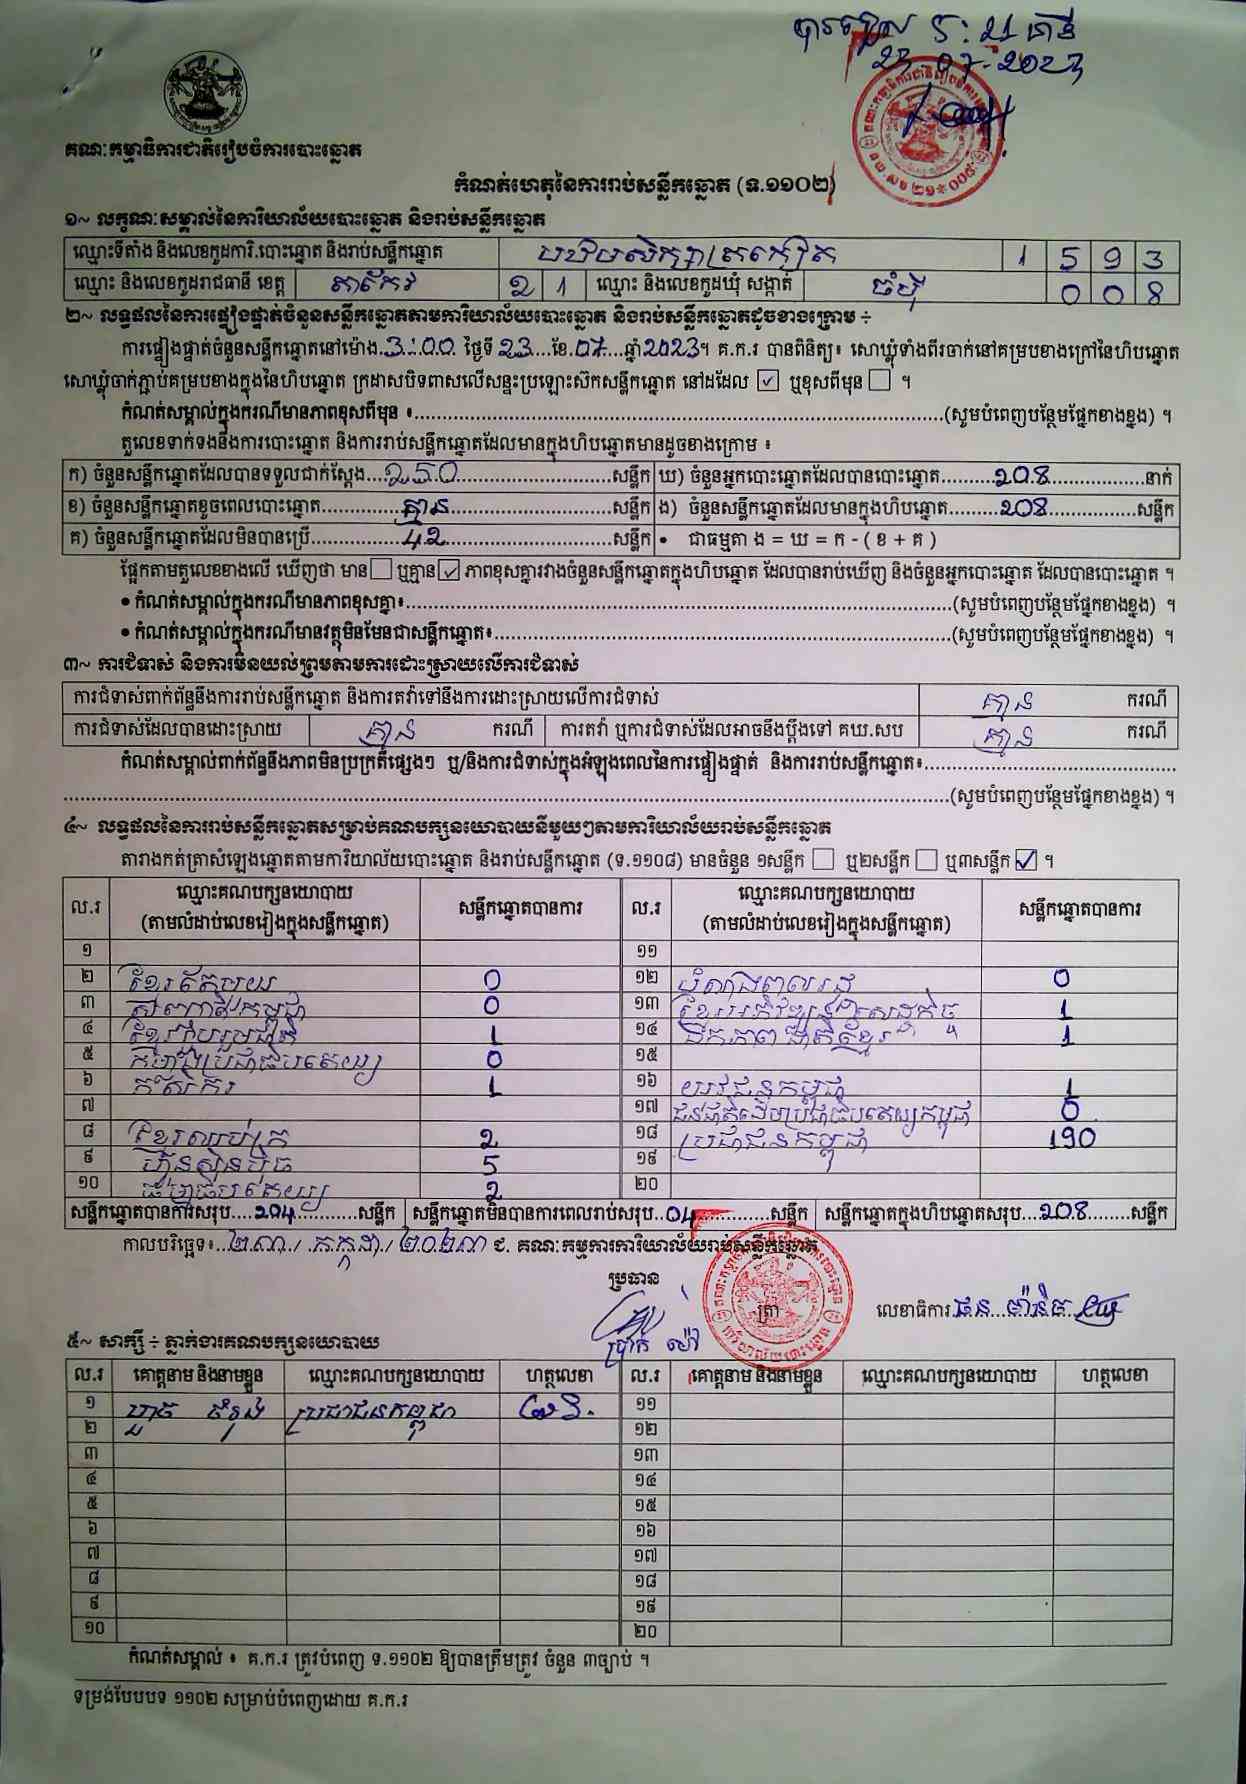 ២៣.០7.2023
គណៈកម្មាធិការជាតិរៀបចំការបោះឆ្នោត
កំណត់ហេតុនៃការរាប់សន្លឹកឆ្នោត (ទ.១១០២)
១~ លក្ខណៈសម្គាល់នៃការិយាល័យបោះឆ្នោត និងរាប់សន្លឹកឆ្នោត
ឈ្មោះទីតាំង និងលេខកូដការិ.បោះឆ្នោត និងរាប់សន្លឹកឆ្នោត 1 5 9 3
ឈ្មោះ និងលេខកូដរាជធានី ខេត្ត តាកែវ 2 1 ឈ្មោះ និងលេខកូដឃុំ សង្កាត់ 0 0 8
២~ លទ្ធផលនៃការផ្ទៀងផ្ទាត់ចំនួនសន្លឹកឆ្នោតតាមការិយាល័យបោះឆ្នោត និងរាប់សន្លឹកឆ្នោតដូចខាងក្រោម ÷
ការផ្ទៀងផ្ទាត់ចំនួនសន្លឹកឆ្នោតនៅម៉ោង.3:00 ថ្ងៃទី 23...ខែ.07...ឆ្នាំ 2023។ គ.ក.រ បានពិនិត្យ៖ សោឃ្លុំទាំងពីរចាក់នៅគម្របខាងក្រៅនៃហិបឆ្នោត
សោឃ្លុំចាក់ភ្ជាប់គម្របខាងក្នុងនៃហិបឆ្នោត ក្រដាសបិទពាសលើសន្ទះប្រឡោះស៊កសន្លឹកឆ្នោត នៅដដែល ☑ ឬខុសពីមុន ☐ ។
កំណត់សម្គាល់ក្នុងករណីមានភាពខុសពីមុន ៖...(សូមបំពេញបន្ថែមផ្នែកខាងខ្នង) ។
តួលេខទាក់ទងនឹងការបោះឆ្នោត និងការរាប់សន្លឹកឆ្នោតដែលមានក្នុងហិបឆ្នោតមានដូចខាងក្រោម ៖
ក) ចំនួនសន្លឹកឆ្នោតដែលបានទទួលជាក់ស្តែង...250...សន្លឹក ឃ) ចំនួនអ្នកបោះឆ្នោតដែលបានបោះឆ្នោត...208...នាក់
ខ) ចំនួនសន្លឹកឆ្នោតខូចពេលបោះឆ្នោត...គ្មាន...សន្លឹក ង) ចំនួនសន្លឹកឆ្នោតដែលមានក្នុងហិបឆ្នោត...208...សន្លឹក
គ) ចំនួនសន្លឹកឆ្នោតដែលមិនបានប្រើ...42...សន្លឹក • ជាធម្មតា ង = ឃ = ក - ( ខ + គ )
ផ្អែកតាមតួលេខខាងលើ ឃើញថា មាន ☐ ឬគ្មាន ☑ ភាពខុសគ្នារវាងចំនួនសន្លឹកឆ្នោតក្នុងហិបឆ្នោត ដែលបានរាប់ឃើញ និងចំនួនអ្នកបោះឆ្នោត ដែលបានបោះឆ្នោត ។
• កំណត់សម្គាល់ក្នុងករណីមានភាពខុសគ្នា៖...(សូមបំពេញបន្ថែមផ្នែកខាងខ្នង) ។
• កំណត់សម្គាល់ក្នុងករណីមានវត្ថុមិនមែនជាសន្លឹកឆ្នោត៖...(សូមបំពេញបន្ថែមផ្នែកខាងខ្នង) ។
៣~ ការជំទាស់ និងការមិនយល់ព្រមតាមការដោះស្រាយលើការជំទាស់
ការជំទាស់ពាក់ព័ន្ធនឹងការរាប់សន្លឹកឆ្នោត និងការតវ៉ាទៅនឹងការដោះស្រាយលើការជំទាស់ គ្មាន ករណី
ការជំទាស់ដែលបានដោះស្រាយ គ្មាន ករណី ការតវ៉ា ឬការជំទាស់ដែលអាចនឹងប្តឹងទៅ គឃ.សប គ្មាន ករណី
កំណត់សម្គាល់ពាក់ព័ន្ធនឹងភាពមិនប្រក្រតីផ្សេងៗ ឬ/និងការជំទាស់ក្នុងអំឡុងពេលនៃការផ្ទៀងផ្ទាត់ និងការរាប់សន្លឹកឆ្នោត៖...
...(សូមបំពេញបន្ថែមផ្នែកខាងខ្នង) ។
៤~ លទ្ធផលនៃការរាប់សន្លឹកឆ្នោតសម្រាប់គណបក្សនយោបាយនីមួយៗតាមការិយាល័យរាប់សន្លឹកឆ្នោត
តារាងកត់ត្រាសំឡេងឆ្នោតតាមការិយាល័យបោះឆ្នោត និងរាប់សន្លឹកឆ្នោត (ទ.១១០៨) មានចំនួន ១សន្លឹក ☐ ឬ២សន្លឹក ☐ ឬ៣សន្លឹក ☑ ។
ល.រ ឈ្មោះគណបក្សនយោបាយ (តាមលំដាប់លេខរៀងក្នុងសន្លឹកឆ្នោត) សន្លឹកឆ្នោតបានការ ល.រ ឈ្មោះគណបក្សនយោបាយ (តាមលំដាប់លេខរៀងក្នុងសន្លឹកឆ្នោត) សន្លឹកឆ្នោតបានការ
១ ១១
២ ខ្មែរតែមួយ 0 ១២ បំណងពលរដ្ឋ 0
៣ សញ្ជាតិកម្ពុជា 0 ១៣ ខ្មែរអភិវឌ្ឍន៍សេដ្ឋកិច្ច 1
៤ ខ្មែររួបរួមជាតិ 1 ១៤ ឯកភាពជាតិខ្មែរ 1
៥ កម្លាំងប្រជាធិបតេយ្យ 0 ១៥
៦ កសិករ 1 ១៦ យុវជនកម្ពុជា 1
៧ ១៧ ជនជាតិដើមប្រជាធិបតេយ្យកម្ពុជា 0
៨ ខ្មែរឈប់ក្រ 2 ១៨ ប្រជាជនកម្ពុជា 190
៩ ហ៊្វុនស៊ិនប៉ិច 5 ១៩
១០ ធម្មាធិបតេយ្យ 2 ២០
សន្លឹកឆ្នោតបានការសរុប....204....សន្លឹក សន្លឹកឆ្នោតមិនបានការពេលរាប់សរុប..04...សន្លឹក សន្លឹកឆ្នោតក្នុងហិបឆ្នោតសរុប...208...សន្លឹក
កាលបរិច្ឆេទ៖..២៣./.កក្កដា./.២០២៣ ជ. គណៈកម្មការការិយាល័យរាប់សន្លឹកឆ្នោត
ប្រធាន
ត្រា លេខាធិការ
៥~ សាក្សី ÷ ភ្នាក់ងារគណបក្សនយោបាយ
ល.រ គោត្តនាម និងនាមខ្លួន ឈ្មោះគណបក្សនយោបាយ ហត្ថលេខា ល.រ គោត្តនាម និងនាមខ្លួន ឈ្មោះគណបក្សនយោបាយ ហត្ថលេខា
១ ប្រជាជនកម្ពុជា ១១
២ ១២
៣ ១៣
៤ ១៤
៥ ១៥
៦ ១៦
៧ ១៧
៨ ១៨
៩ ១៩
១០ ២០
កំណត់សម្គាល់ ៖ គ.ក.រ ត្រូវបំពេញ ទ.១១០២ ឱ្យបានត្រឹមត្រូវ ចំនួន ៣ច្បាប់ ។
ទម្រង់បែបបទ ១១០២ សម្រាប់បំពេញដោយ គ.ក.រ